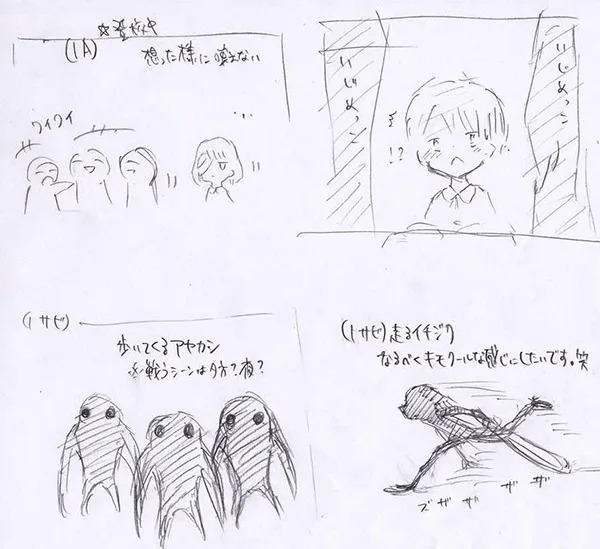 ☆登校中
(1A)
想った様に喋えない
ワイワイ
いじめっこ
いじめっこ
!?
(1サビ)
歩いてくるアヤカシ
※戦うシーンは夕方？夜？
(1サビ)走るイチジク
なるべくキモクールな感じにしたいです。笑
ズザザザザ